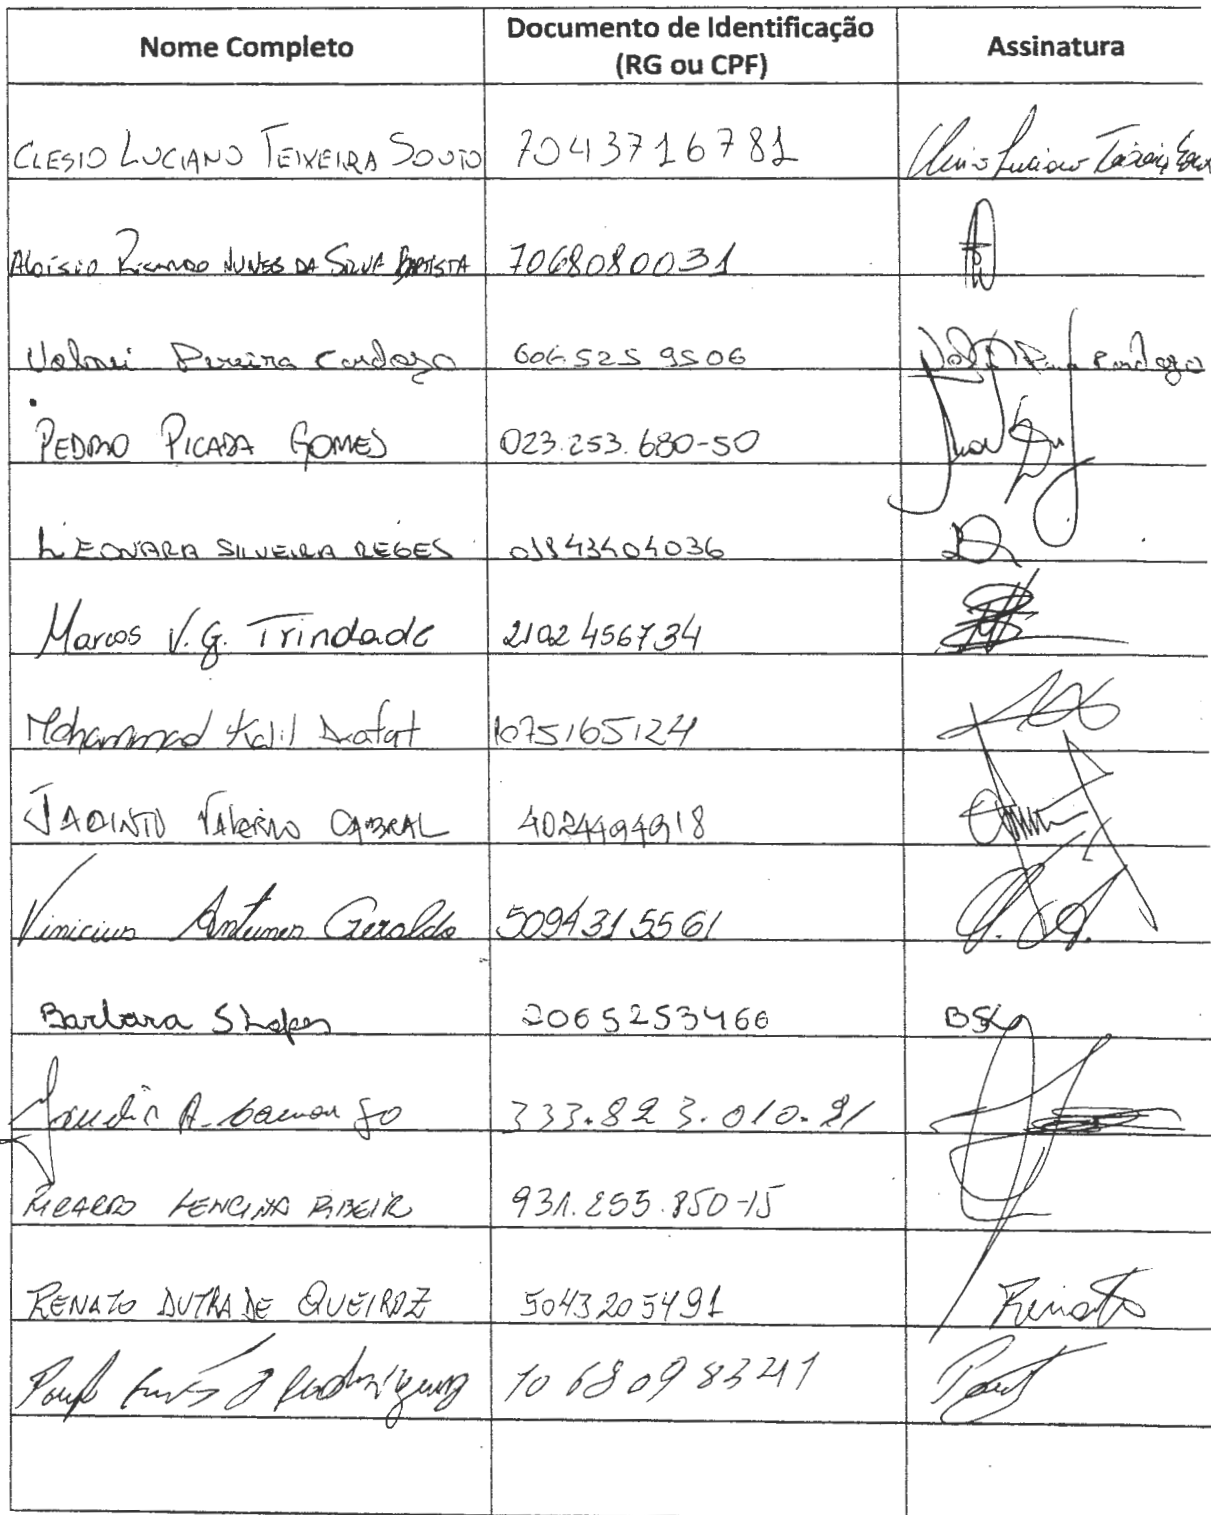 Nome Completo Documento de Identificação (RG ou CPF) Assinatura
CLESIO LUCIANO TEIXEIRA SOUTO 70437 16781
Aloísio Ricardo NUNES DA SILVA BATISTA 7068080031
Volnei Pereira Cardozo 606 525 9506
PEDRO PICADA GOMES 023.253.680-50
LEONARA SILVEIRA REGES 01843404036
Marcos V. G. Trindade 2102456734
Mohammad Kalil Arafat 1075165124
JACINTO VALERIO CABRAL 4024494918
Vinicius Antunes Geraldo 5094315561
Barbara S Lopes 2065253466 BSL
A. Camargo 333.823.010.21
RICARDO LENCINA RIBEIR 931.255.850-15
RENATO DUTRA DE QUEIROZ 5043205491 Renato
Rodrigues 1068098341